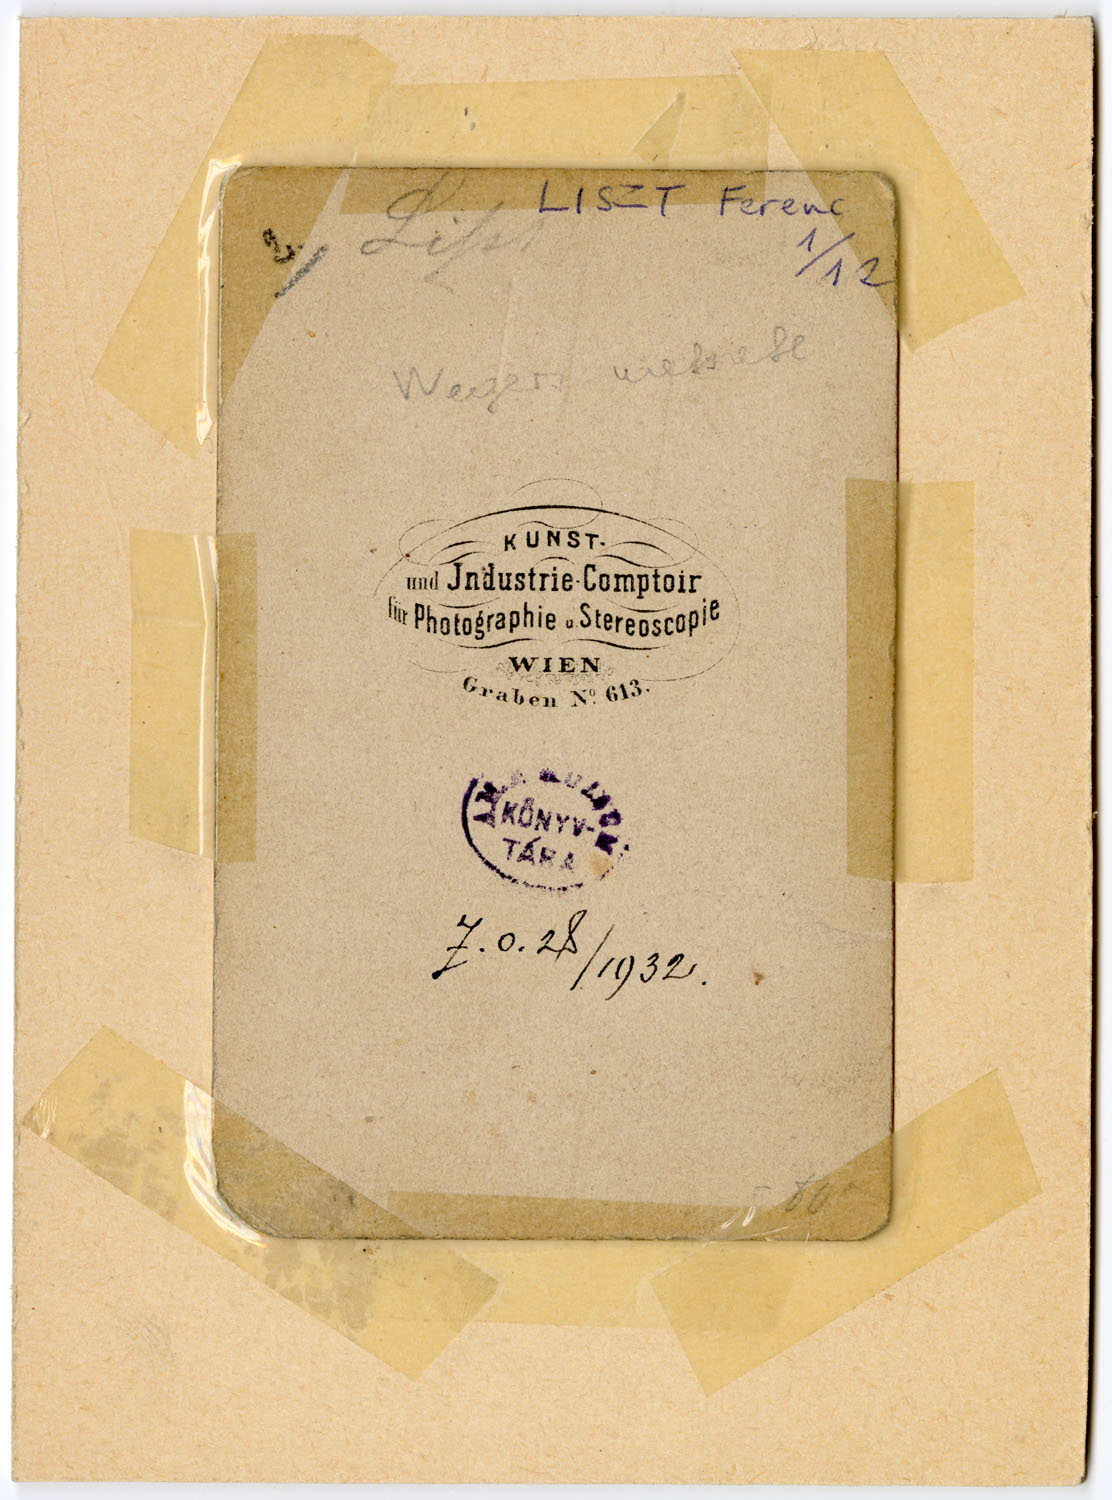 LISZT Ferenc
1/12
2/ Liszt
KUNST-
und Jndustrie-Comptoir
für Photographie u. Stereoscopie
WIEN
Graben No. 613.
KÖNYV-
TÁRA
7.0.28/1932.